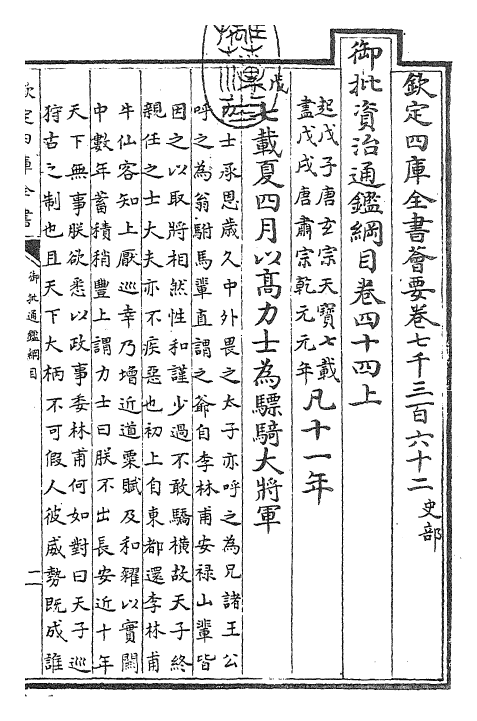 欽定四庫全書薈要卷七千三百六十二 史部
御批資治通鑑綱目卷四十四上
起戊子唐玄宗天寶七載
盡戊戌唐肅宗乾元元年
凡十一年
七載夏四月以高力士為驃騎大將軍
力士承恩歲久中外畏之太子亦呼之為兄諸王公
呼之為翁駙馬輩直謂之爺自李林甫安祿山輩皆
因之以取將相然性和謹少過不敢驕橫故天子終
親任之士大夫亦不疾惡也初上自東都還李林甫
牛仙客知上厭巡幸乃增近道粟賦及和糴以實關
中數年蓄積稍豐上謂力士曰朕不出長安近十年
天下無事朕欲悉以政事委林甫何如對曰天子巡
狩古之制也且天下大柄不可假人彼威勢既成誰
欽定四庫全書
御批通鑑綱目